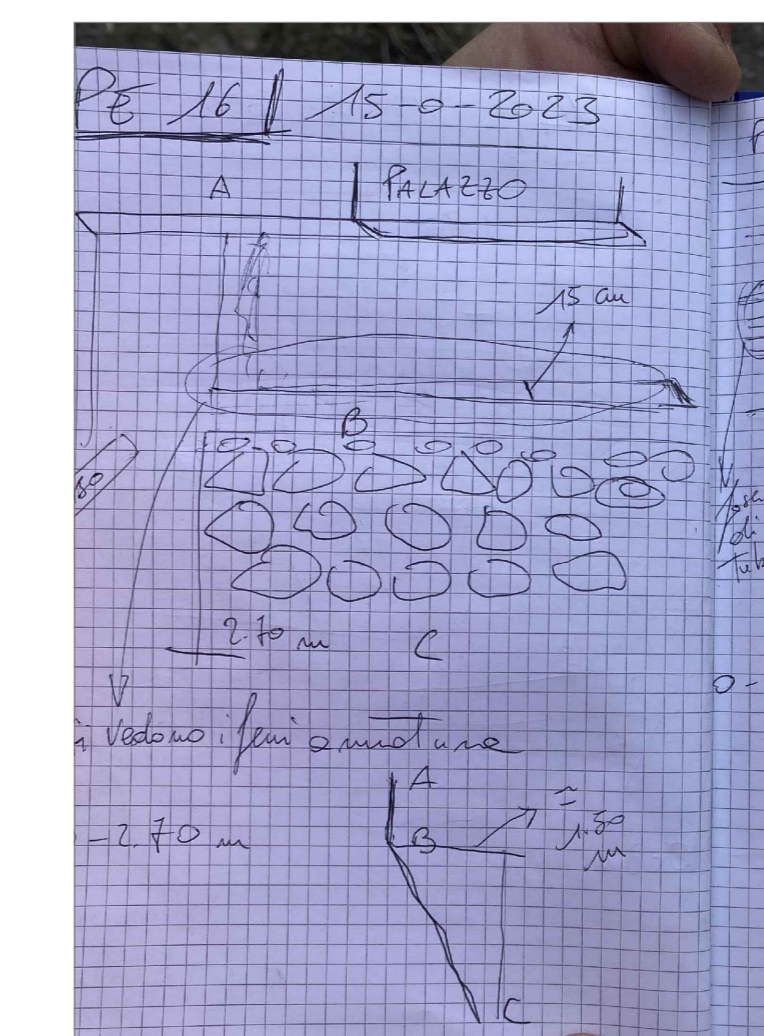 PE 16 15-0-2023
A PALAZZO
15 cm
B
80
2.70 m C
si vedono i ferri armatura
A
≈ 1.50 m
0-2.70 m B
C
di
0-